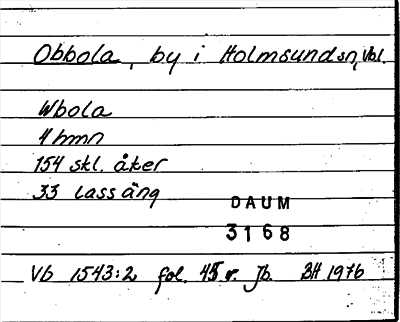 Obbola, by i Holmsundsn, Vbl.
Wbola
4 hmn
154 skl. åker
33 lass äng
DAUM
3168
Vb 1543:2 fol. 45 r. Jb. BH 1976